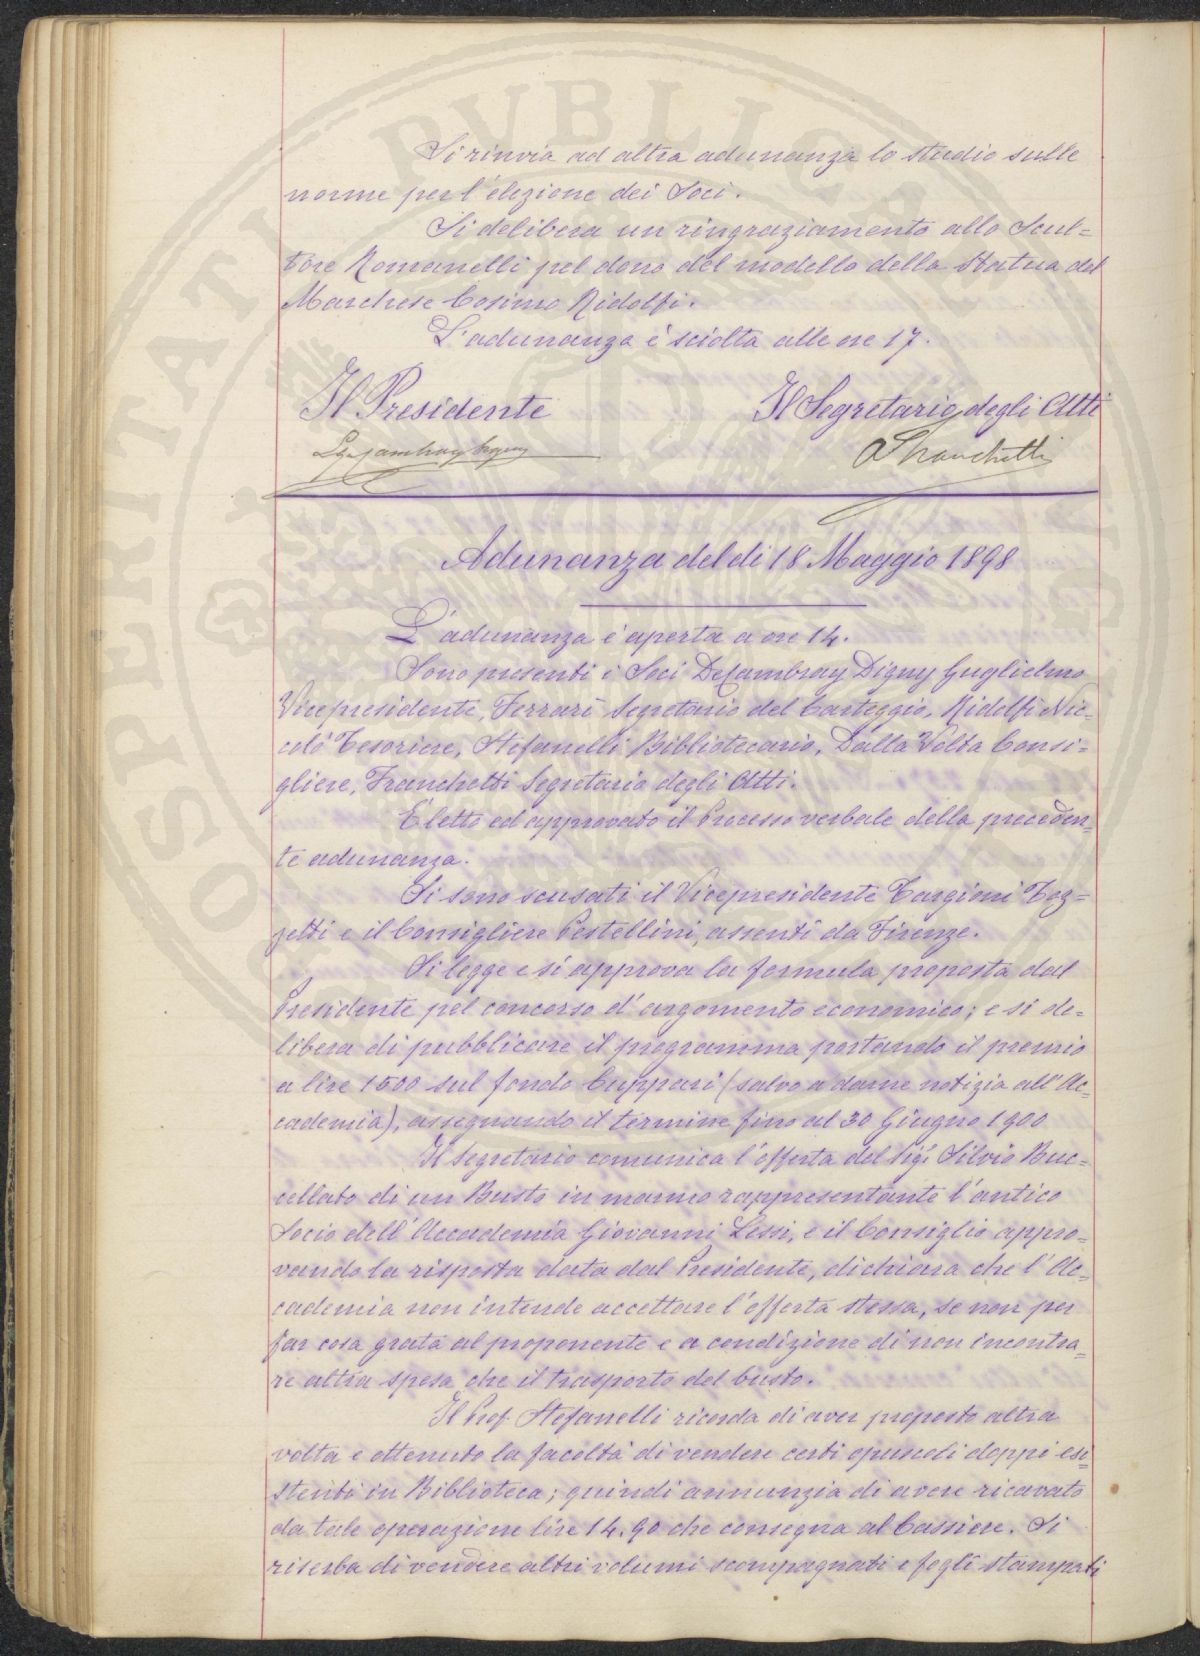 Si rinvia ad altra adunanza lo studio sulle
norme per l'elezione dei Soci.
Si delibera un ringraziamento allo Scul=
tore Romanelli pel dono del modello della Statua del
Marchese Cosimo Ridolfi.
L'adunanza è sciolta alle ore 17.
Il Presidente Il Segretario degli Atti
AFranchetti
Adunanza del dì 18 Maggio 1898
L'adunanza è aperta a ore 14.
Sono presenti i Soci DeCambray Digny Guglielmo
Vicepresidente, Ferrari Segretario del Carteggio, Ridolfi Nic=
colò Tesoriere, Stefanelli Bibliotecario, Dalla Volta Consi=
gliere, Franchetti Segretario degli Atti.
È letto ed approvato il Processo verbale della preceden=
te adunanza.
Si sono scusati il Vicepresidente Targioni Toz=
zetti e il Consigliere Pestellini, assenti da Firenze.
Si legge e si approva la formula proposta dal
Presidente pel concorso d'argomento economico; e si de=
libera di pubblicare il programma portando il premio
a lire 1500 sul fondo Cuppari (salvo a darne notizia all'Ac=
cademia), assegnando il termine fino al 30 Giugno 1900
Il Segretario comunica l'offerta del Sig: Silvio Buc=
cellato di un Busto in marmo rappresentante l'antico
Socio dell'Accademia Giovanni Lessi, e il Consiglio appro=
vando la risposta data dal Presidente, dichiara che l'Ac=
cademia non intende accettare l'offerta stessa, se non per
far cosa grata al proponente e a condizione di non incontra=
re altra spesa che il trasporto del busto.
Il Prof. Stefanelli ricorda di aver proposto altra
volta e ottenuto la facoltà di vendere certi opuscoli doppi esi=
stenti in Biblioteca; quindi annunzia di avere ricavato
da tale operazione lire 14.90 che consegna al Cassiere. Si
riserba di vendere altri volumi scompagnati e fogli stampati
PROSPERITATI PUBLICAE